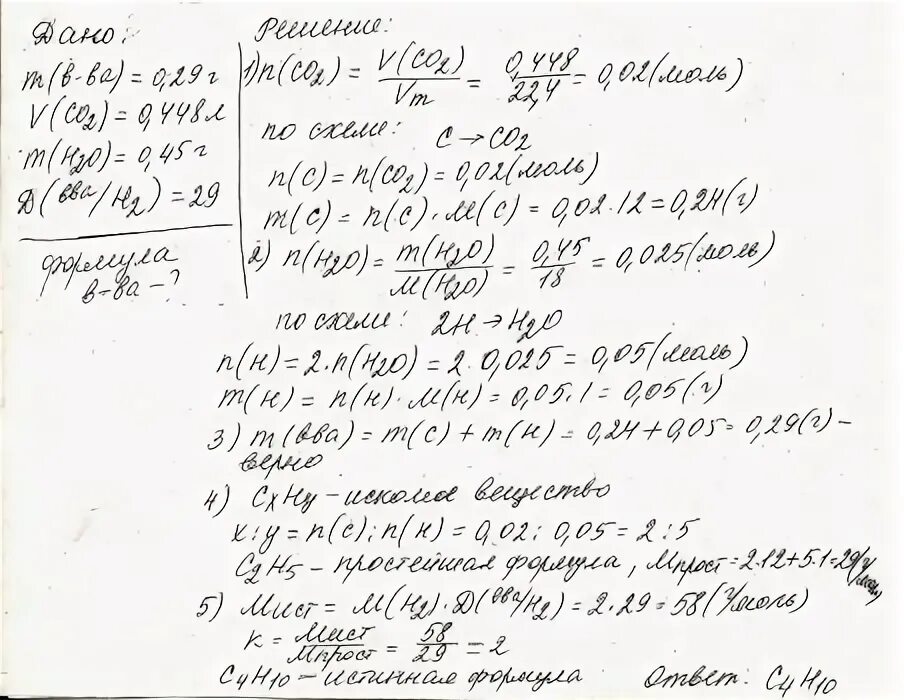 Дано:
m(в-ва) = 0,29 г
V(CO2) = 0,448 л
m(H2O) = 0,45 г
Д(вва/H2) = 29
формула
в-ва - ?
Решение:
1) n(CO2) = V(CO2)/Vm = 0,448/22,4 = 0,02 (моль)
по схеме: C → CO2
n(C) = n(CO2) = 0,02 (моль)
m(C) = n(C) · M(C) = 0,02 · 12 = 0,24 (г)
2) n(H2O) = m(H2O)/M(H2O) = 0,45/18 = 0,025 (моль)
по схеме: 2H → H2O
n(H) = 2 · n(H2O) = 2 · 0,025 = 0,05 (моль)
m(H) = n(H) · M(H) = 0,05 · 1 = 0,05 (г)
3) m(вва) = m(C) + m(H) = 0,24 + 0,05 = 0,29 (г) -
верно
4) CxHy - искомое вещество
x : y = n(C) : n(H) = 0,02 : 0,05 = 2 : 5
C2H5 - простейшая формула, Mпрост = 2·12+5·1=29(г/моль)
5) Mист = M(H2) · Д(вва/H2) = 2 · 29 = 58 (г/моль)
k = Mист/Mпрост = 58/29 = 2
C4H10 - истинная формула Ответ: C4H10